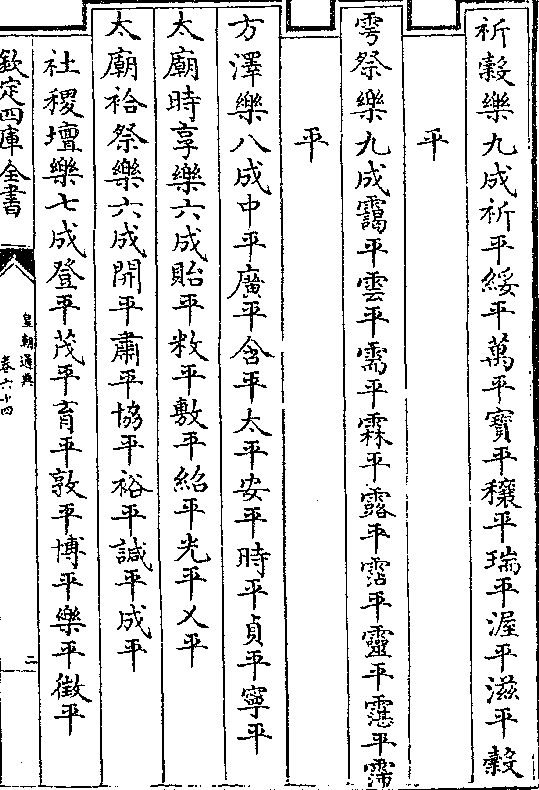 祈穀樂九成祈平綏平萬平寶平穰平瑞平渥平滋平穀
平
雩祭樂九成靄平雲平需平霖平露平霑平靈平霮平霈
平
方澤樂八成中平廣平含平太平安平時平貞平寧平
太廟時享樂六成貽平敉平敷平紹平光平乂平
太廟祫祭樂六成開平肅平協平裕平諴平成平
社稷壇樂七成登平茂平育平敦平博平樂平徵平
欽定四庫全書
皇朝通典
卷六十四
二